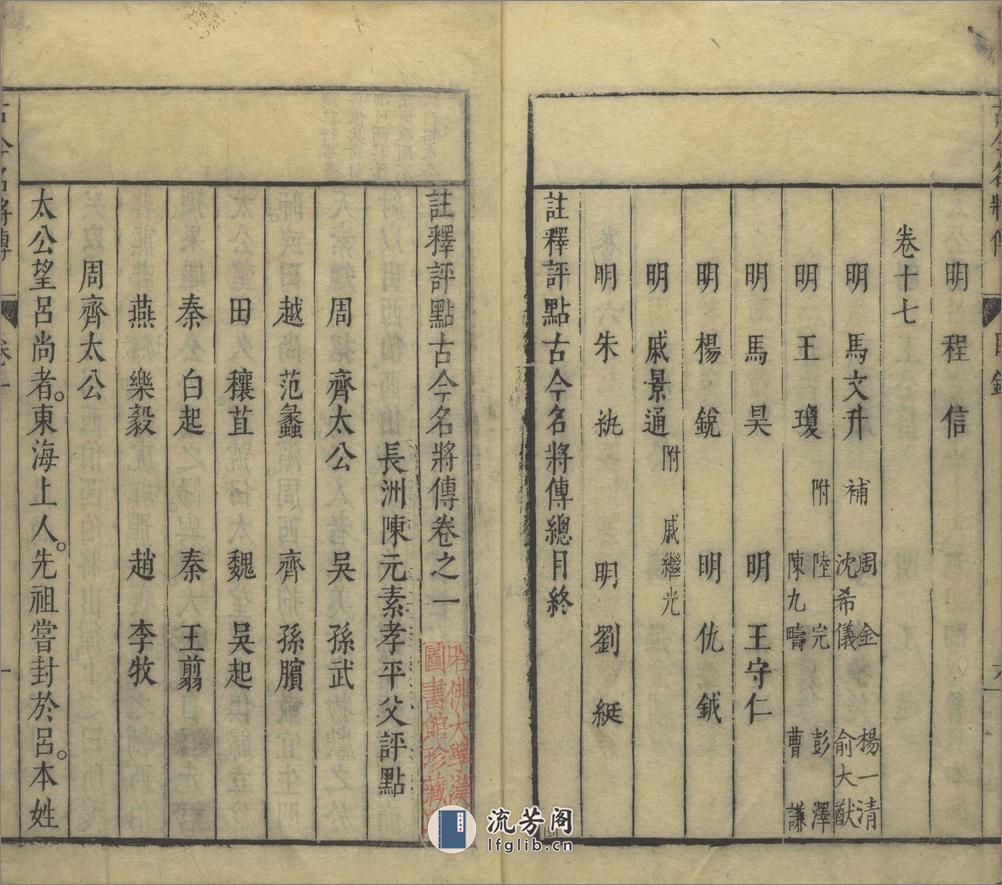 明 程信
卷十七
明 馬文升 補 周金 楊一清
沈希儀 俞大猷
明 王瓊 附 陸完 彭澤
陳九疇 曹謙
明 馬昊 明 王守仁
明 楊銳 明 仇鉞
明 戚景通 附 戚繼光
明 朱 明 劉
註釋評點古今名將傳總目終
註釋評點古今名將傳卷之一
長洲陳元素孝平父評點
周 齊太公 吳 孫武
越 范蠡 齊 孫臏
田穰苴 魏 吳起
秦 白起 秦 王翦
燕 樂毅 趙 李牧
周齊太公
太公望呂尚者。東海上人。先祖嘗封於呂。本姓
古今名將傳
卷一
一
哈佛大學漢
圖書館珍藏
流芳阁
lfglib.cn